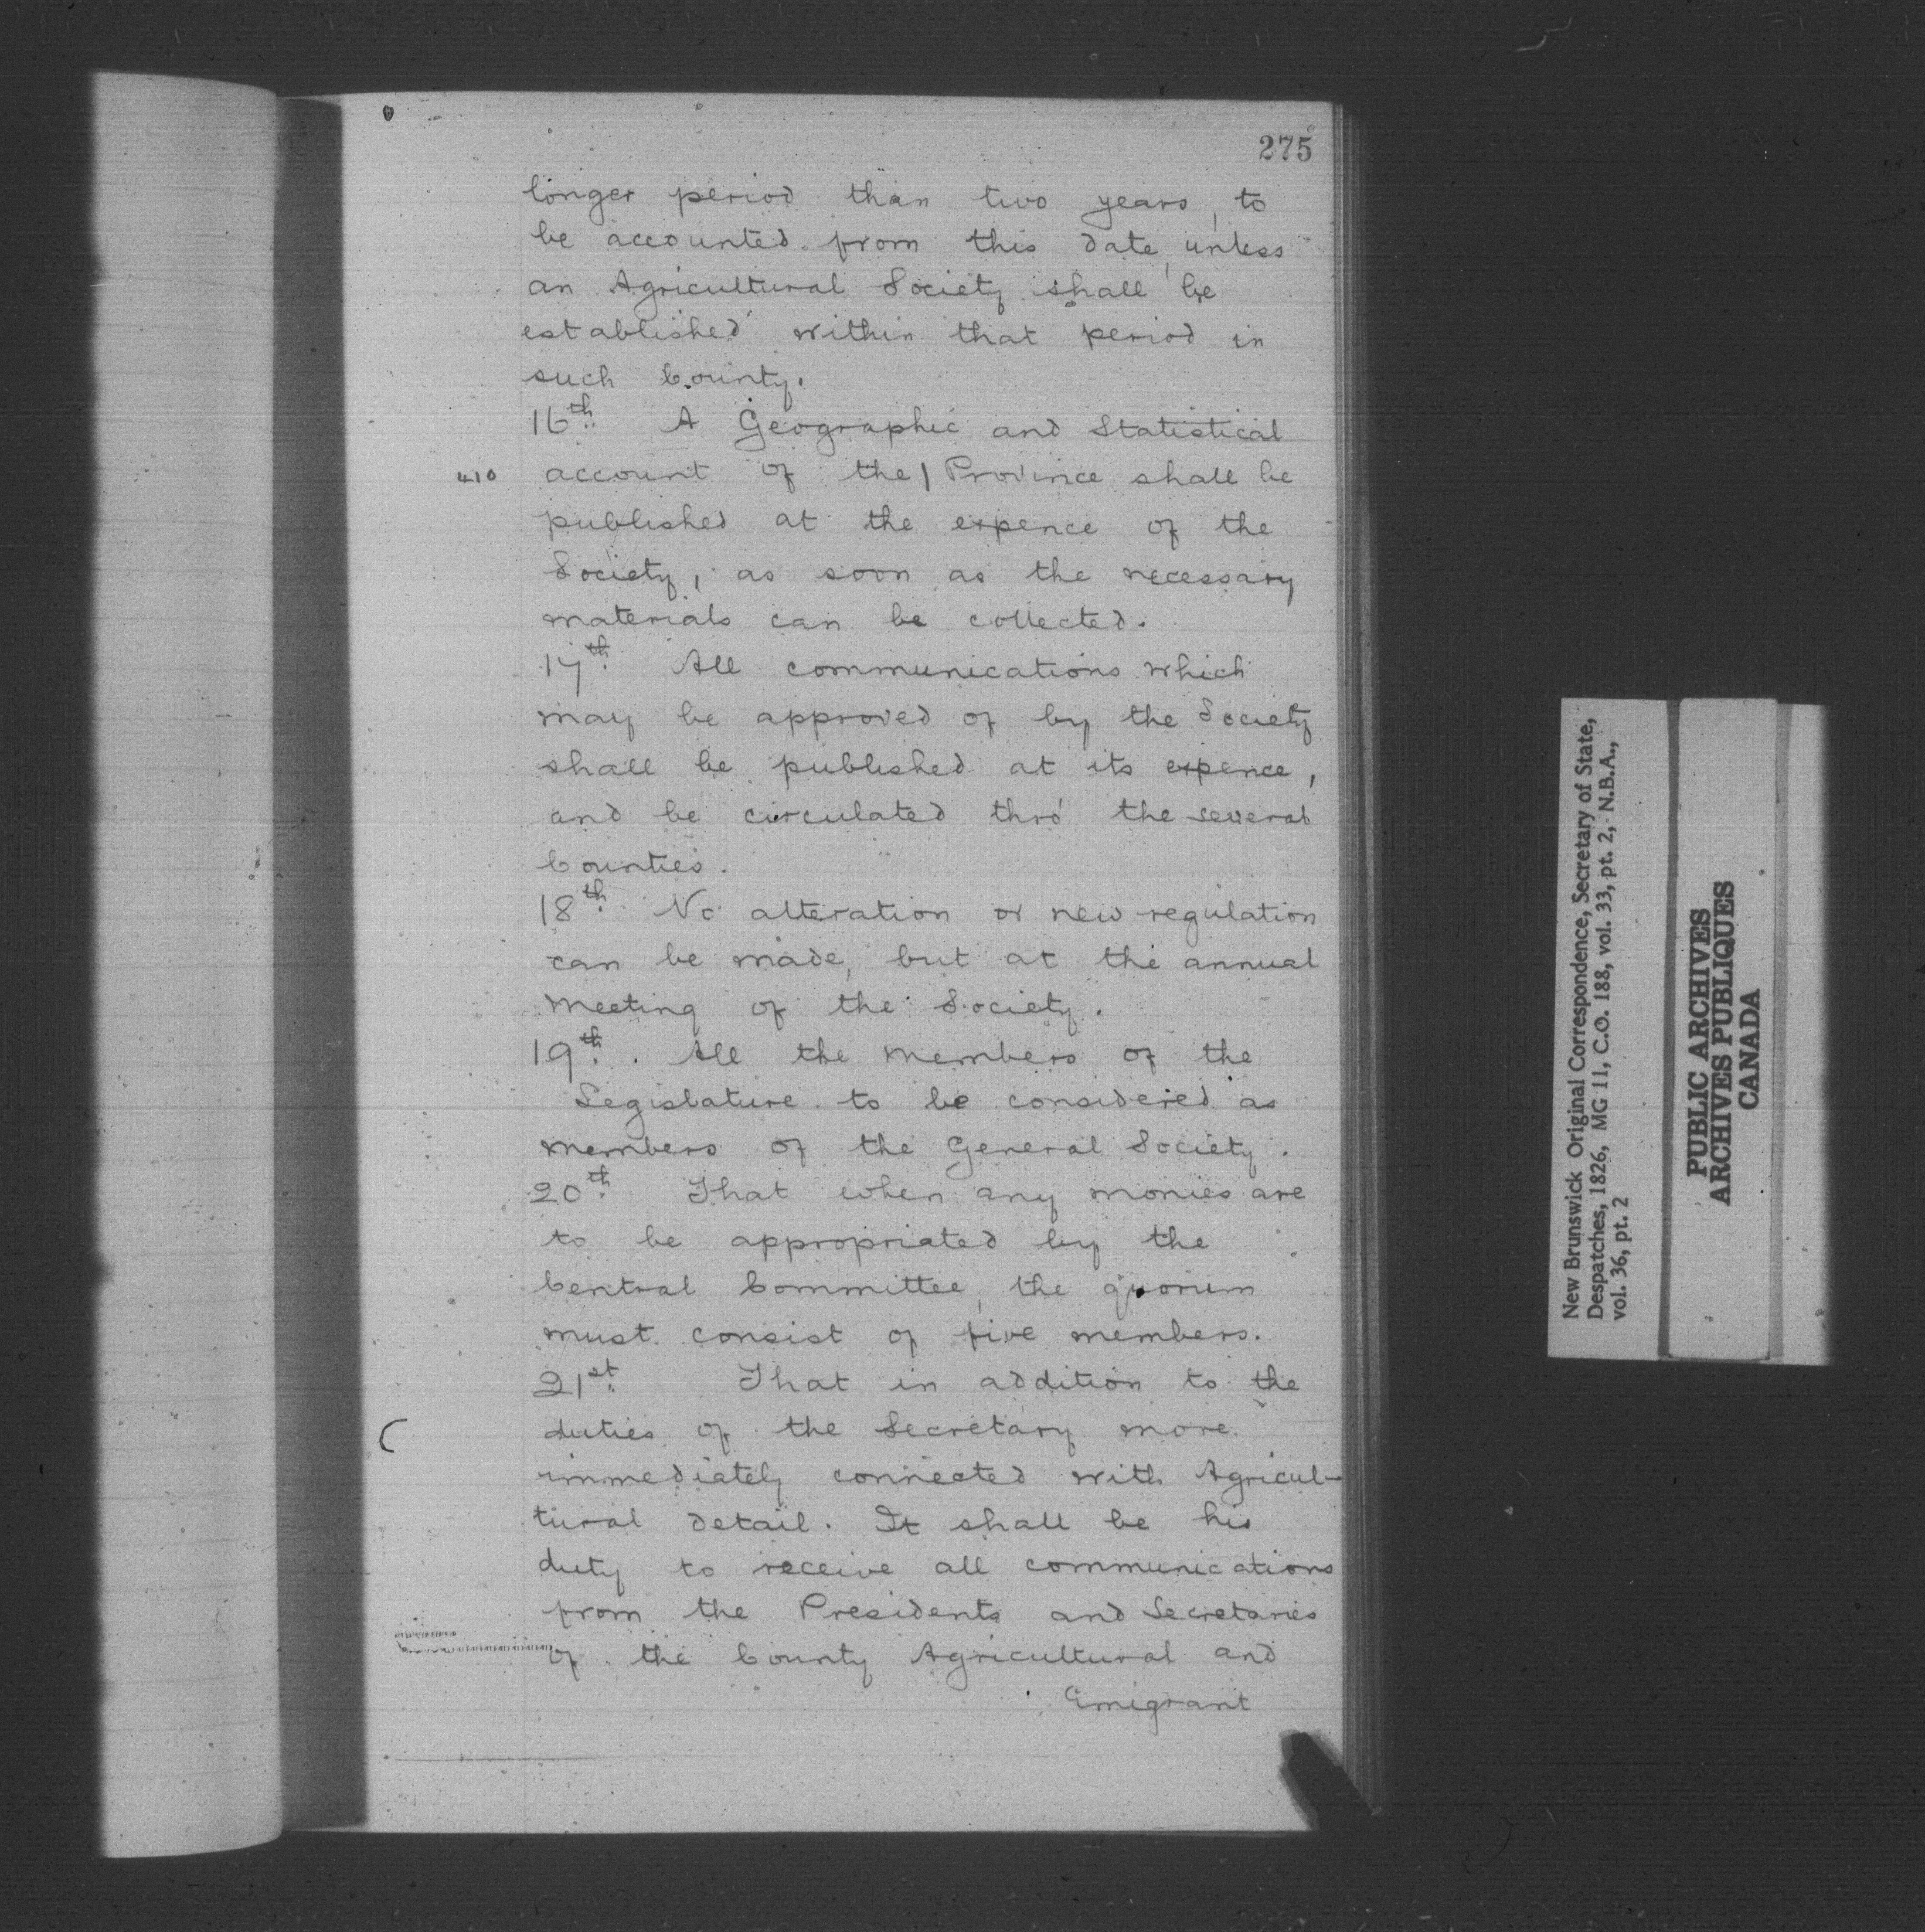 275
longer period than two years, to
be accounted from this date, unless
an Agricultural Society shall be
established within that period in
such County.
16th. A Geographic and Statistical
410 account of the / Province shall be
published at the expence of the
Society, as soon as the necessary
materials can be collected.
17th. All communications which
may be approved of by the Society
shall be published at its expence,
and be circulated thro' the several
Counties.
18th. No alteration or new regulation
can be made, but at the annual
meeting of the Society.
19th. All the members of the
Legislature to be considered as
members of the General Society.
20th. That when any monies are
to be appropriated by the
Central Committee, the quorum
must consist of five members.
21st. That in addition to the
duties of the Secretary more
immediately connected with Agricul-
tural detail. It shall be his
duty to receive all communications
from the Presidents and Secretaries
of the County Agricultural and
Emigrant
New Brunswick Original Correspondence, Secretary of State,
Despatches, 1826, MG 11, C.O. 188, vol. 33, pt. 2, N.B.A.,
vol. 36, pt. 2
PUBLIC ARCHIVES
ARCHIVES PUBLIQUES
CANADA